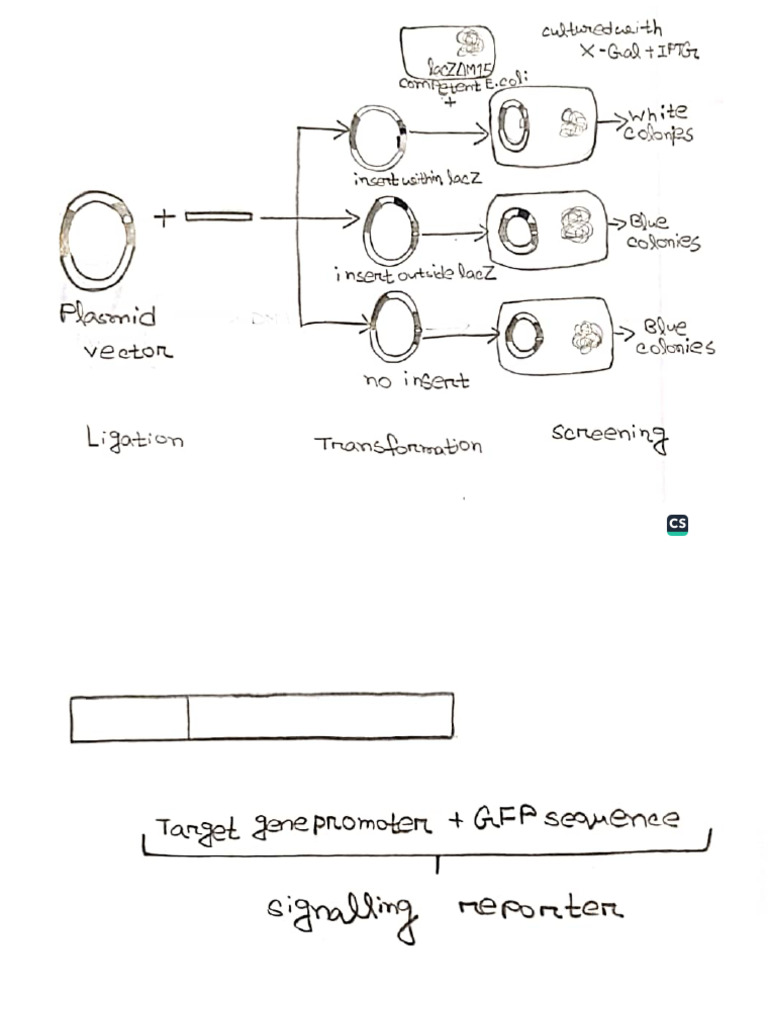 cultured with
X-Gal + IPTG
lacZΔM15
competent E.coli
+
White
colonies
insert within lacZ
+
Blue
colonies
insert outside lacZ
Plasmid
vector
Blue
colonies
no insert
Ligation
Transformation
screening
CS
Target gene promoter + GFP sequence
signalling reporter